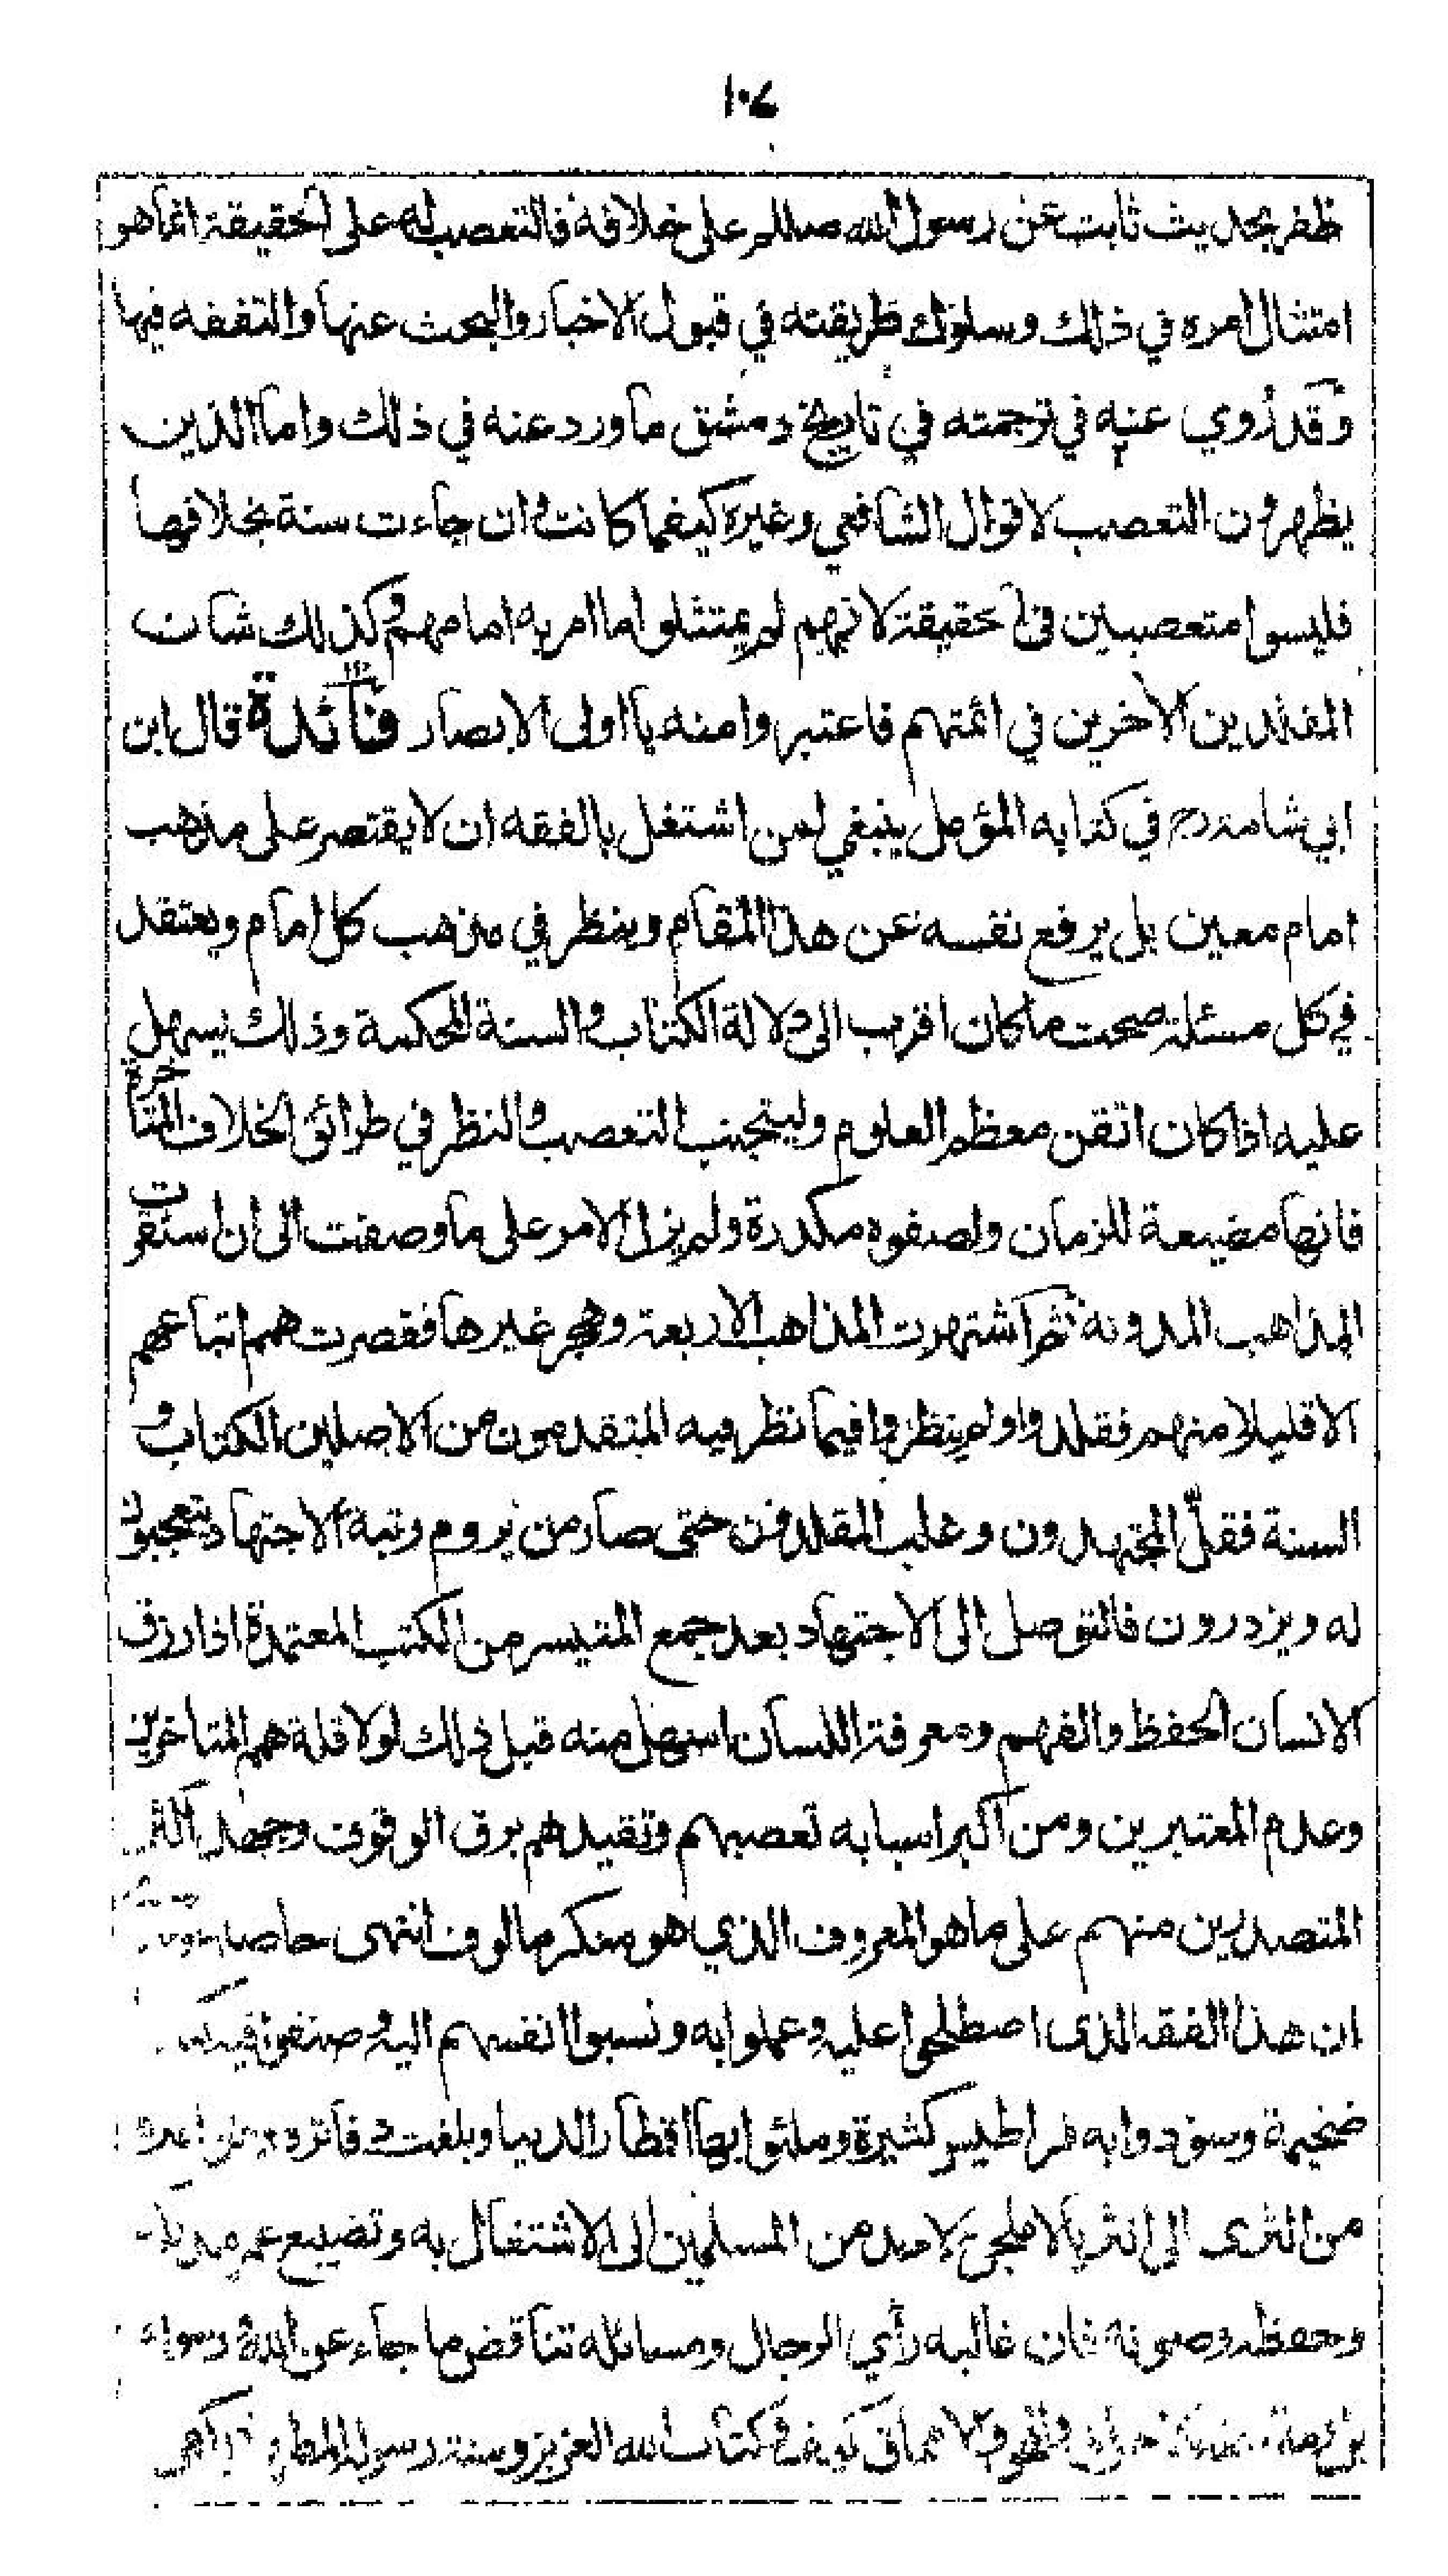 ١٠٤
ظفر بحديث ثابت عن رسول الله صللم على خلافه فالتعصب له على الحقيقة انما هو
امتثال امره في ذلك وسلوك طريقته في قبول الاخبار والبحث عنها والتفقه فيها
وقد روي عنه في ترجمته في تاريخ دمشق ما ورد عنه في ذلك واما الذين
يظهرون التعصب لاقوال الشافعي وغيره كيفما كانت وان جاءت سنة بخلافها
فليسوا متعصبين في الحقيقة لانهم لم يمتثلوا ما امر به امامهم وكذلك شان
المقلدين الآخرين في ائمتهم فاعتبروا منه يا اولى الابصار فائدة قال ابن
ابي شامة رح في كتابه المؤمل ينبغي لمن اشتغل بالفقه ان لا يقتصر على مذهب
امام معين بل يرفع نفسه عن هذا المقام وينظر في مذهب كل امام ويعتقد
في كل مسئلة صحت ما كان اقرب الى دلالة الكتاب والسنة المحكمة وذلك يسهل
عليه اذا كان اتقن معظم العلوم وليتجنب التعصب والنظر في طرائق الخلاف المتاخرة
فانها مضيعة للزمان ولصفوه مكدرة ولم يزل الامر على ما وصفت الى ان استقرت
المذاهب المدونة ثم اشتهرت المذاهب الاربعة وهجر غيرها فقصرت همم اتباعهم
الا قليلا منهم فقلدوا ولم ينظروا فيما نظر فيه المتقدمون من الاصلين الكتاب و
السنة فقلّ المجتهدون وغلب المقلدون حتى صار من يروم رتبة الاجتهاد يتعجبون
له ويزدرون فالتوصل الى الاجتهاد بعد جمع المتيسر من الكتب المعتمدة اذا رزق
الانسان الحفظ والفهم ومعرفة اللسان اسهل منه قبل ذلك لولا قلة همم المتاخرين
وعدم المعتبرين ومن اكبر اسبابه تعصبهم وتقيدهم برق الوقوف وجهل اكثر
المتصدرين منهم على ما هو المعروف الذي هو منكر مالوف انتهى حاصله
ان هذا الفقه الذى اصطلحوا عليه وعملوا به ونسبوا انفسهم اليه وصنفوا فيه
ضخيمة وسودوا به قراطيس كثيرة وملئوا بها اقطار الدنيا وبلغت دفاتره
من الثرى الى الثريا لا ملجئ لاحد من المسلمين الى الاشتغال به وتضييع عمره
وحفظه وصونه فان غالبه رأي الرجال ومسائله تناقض ما جاء عن الله ورسوله
كيف وكتاب الله العزيز وسنة رسوله المطهر